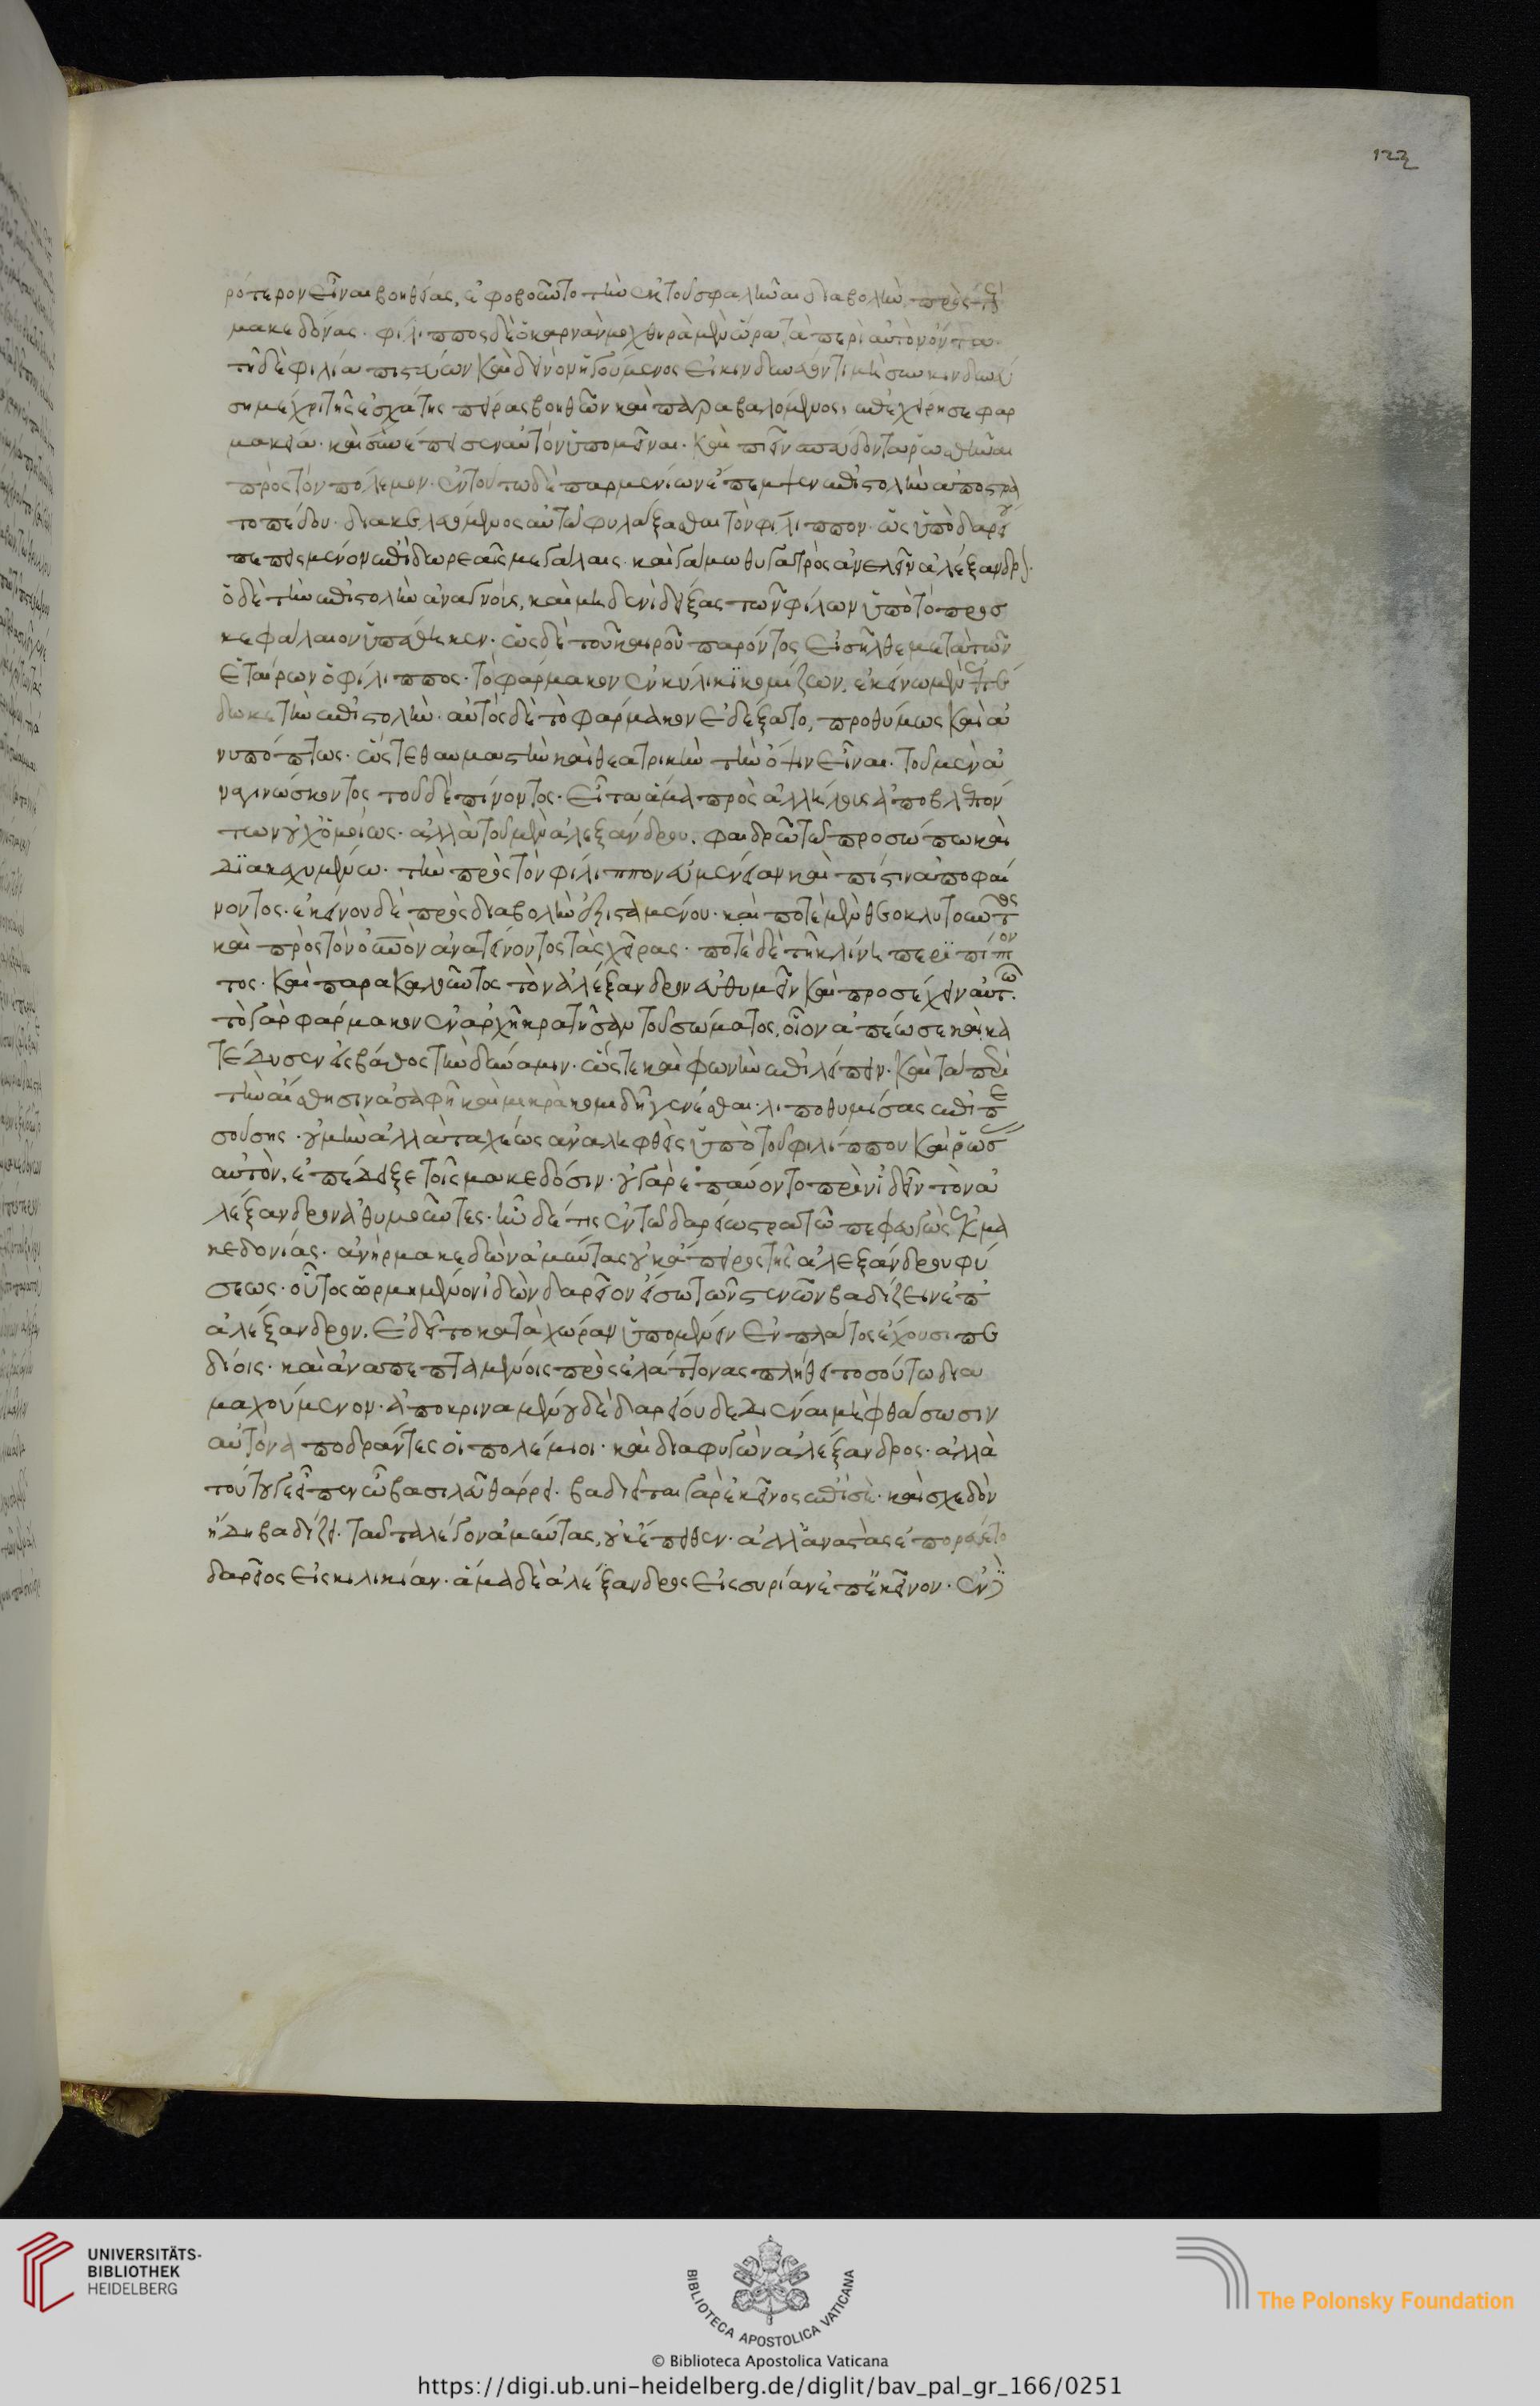 122
ρότερον εἶναι βοηθείας, ἐφοβοῦντο τὴν ἐκ τοῦ σφαλῆναι διαβολὴν πρὸς
μακεδόνας. φίλιππος δὲ ὁ ἀκαρνὰν μοχθηρὰ μὲν ἑώρα τὰ περὶ αὐτὸν ὄντα.
τῆ δὲ φιλία πιστεύων καὶ δεινὸν ἡγούμενος εἰ κινδυνεύοντι μὴ συγκινδυνεύ
ση μέχρι τῆς ἐσχάτης πείρας βοηθῶν καὶ παραβαλόμενος, ἐπεχείρησε φαρ
μακεία. καὶ συνέπεισεν αὐτὸν ὑπομεῖναι. καὶ πιεῖν σπεύδοντα ῥωσθῆναι
πρὸς τὸν πόλεμον. ἐν τούτω δὲ παρμενίων ἔπεμψεν ἐπιστολὴν ἀπὸ στρα
τοπέδου. διακελευόμενος αὐτῶ φυλάξασθαι τὸν φίλιππον. ὡς ὑπὸ δαρεί
πεπεισμένον ἐπὶ δωρεαῖς μεγάλαις. καὶ γάμω θυγατρὸς ἀνελεῖν ἀλέξανδρ
ὁ δὲ τὴν ἐπιστολὴν ἀναγνοὺς, καὶ μηδενὶ δείξας τῶν φίλων ὑπὸ τὸ προσ
κεφάλαιον ὑπέθηκεν. ὡς δὲ τοῦ καιροῦ παρόντος εἰσῆλθε μετὰ τῶν
ἑταίρων ὁ φίλιππος. τὸ φάρμακον ἐν κύλικι κομίζων. ἐκείνω μὲν ἐπέ
δωκε τὴν ἐπιστολὴν. αὐτὸς δὲ τὸ φάρμακον ἐδέξατο, προθύμως καὶ ἀ
νυπόπτως. ὥστε θαυμαστὴν καὶ θεατρικὴν τὴν ὄψιν εἶναι. τοῦ μὲν ἀ
ναγινώσκοντος τοῦ δὲ πίνοντος. εἶτα ἅμα πρὸς ἀλλήλους ἀποβλεπόν
των οὐχ ὁμοίως. ἀλλὰ τοῦ μὲν ἀλεξάνδρου. φαιδρῶ τῶ προσώπω καὶ
διακεχυμένω. τὴν πρὸς τὸν φίλιππον εὐμένειαν καὶ πίστιν ἀποφαί
νοντος. ἐκείνου δὲ πρὸς διαβολὴν ἐξισταμένου. καὶ ποτὲ μὲν θεοκλυτοῦντος
καὶ πρὸς τὸν οὐνον ἀνατείνοντος τὰς χεῖρας. ποτὲ δὲ τῆ κλίνη περιπίπτον
τος. καὶ παρακαλοῦντος τὸν ἀλέξανδρον εὐθυμεῖν καὶ προσέχειν αὐτῶ.
τὸ γὰρ φάρμακον ἐν ἀρχῆ κρατῆσαν τοῦ σώματος, οἷον ἀπέωσε καὶ κα
τέδυσεν εἰς βάθος τὴν δύναμιν. ὥστε καὶ φωνὴν ἐπιλείπειν. καὶ τὰ περὶ
τὴν αἴσθησιν ἀσαφῆ καὶ μικρὰ κομιδῆ γενέσθαι. λιποθυμίας ἐπιπε
σούσης. οὐ μὴν ἀλλὰ ταχέως ἀναληφθεὶς ὑπὸ τοῦ φιλίππου καὶ ῥώσ
αὐτὸν, ἐπέδειξε τοῖς μακεδόσιν. οὐ γὰρ ἐπαύοντο πρὶν ἰδεῖν τὸν ἀ
λέξανδρον ἀθυμοῦντες. ἦν δέ τις ἐν τῶ δαρείω στρατῶ πεφευγὼς ἐκ μα
κεδονίας. ἀνὴρ μακεδὼν ἀμύντας οὐκ ἄπειρος τῆς ἀλεξάνδρου φύ
σεως. οὗτος ὡρμημένον ἰδὼν δαρεῖον εἴσω τῶν στενῶν βαδίζειν ἐπ
ἀλέξανδρον. ἐδεῖτο κατὰ χώραν ὑπομένειν ἐν πλάτος ἔχουσι πε
δίοις. καὶ ἀναπεπταμένοις πρὸς ἐλάττονας πλήθει τοσούτω δια
μαχούμενον. ἀποκριναμένου δὲ δαρείου δεδιέναι μὴ φθάσωσιν
αὐτὸν ἀποδράντες οἱ πολέμιοι. καὶ διαφυγὼν ἀλέξανδρος. ἀλλὰ
τούτου γε εἶπεν ὦ βασιλεῦ θάρρει. βαδιεῖται γὰρ ἐκεῖνος ἐπὶ σὲ. καὶ σχεδὸν
ἤδη βαδίζει. ταῦτα λέγον ἀμύντας, οὐκ ἔπειθεν. ἀλλ ἀναστὰς ἐπορεύετο
δαρεῖος εἰς κιλικίαν. ἅμα δὲ ἀλέξανδρος εἰς συρίαν ἐπ ἐκεῖνον. ἐν
UNIVERSITÄTS-
BIBLIOTHEK
HEIDELBERG
BIBLIOTECA APOSTOLICA VATICANA
The Polonsky Foundation
© Biblioteca Apostolica Vaticana
https://digi.ub.uni-heidelberg.de/diglit/bav_pal_gr_166/0251